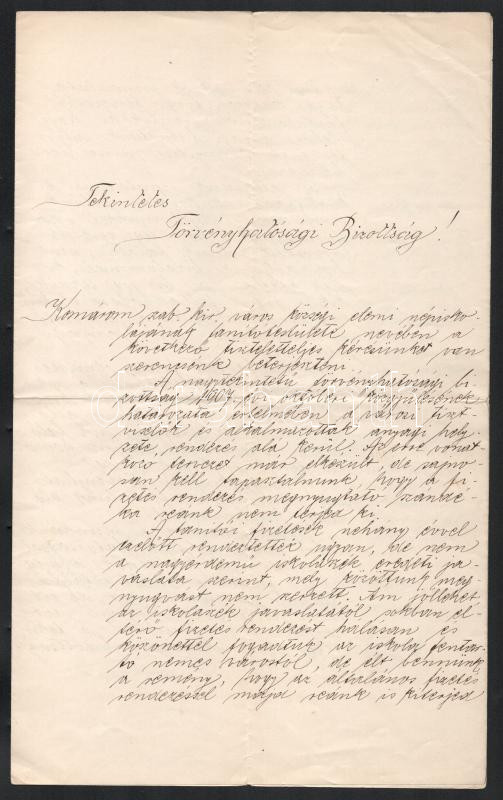 Tekintetes
Törvényhatósági Bizottság!
Komárom szab. kir. város községi elemi népisko-
lájának tanítótestülete nevében a
következő tiszteletteljes kérésünket van
szerencsénk beterjeszteni.
A nagytekintetű törvényhatósági bi-
zottság 1907. évi októberi közgyűlésének
határozata értelmében a városi tiszt-
viselők és alkalmazottak anyagi hely-
zete, rendezés alá kerül. Az erre vonat-
kozó tervezet már elkészült, de sajno-
san kell tapasztalnunk, hogy a fi-
zetés rendezés megnyugtató szándé-
ka reánk nem terjed ki.
A tanítói fizetések néhány évvel
ezelőtt rendeztettek ugyan, de nem
a nagyérdemű iskolaszék eredeti ja-
vaslata szerint, mely közöttünk meg-
nyugvást nem szerzett. Ám jóllehet
az iskolaszék javaslatától sokban el-
térő fizetés rendezést hálásan és
köszönettel fogadtuk az iskola fentar-
tó nemes várostól, de élt bennünk
a remény, hogy az általános fizetés
rendezéssel majd reánk is kiterjed